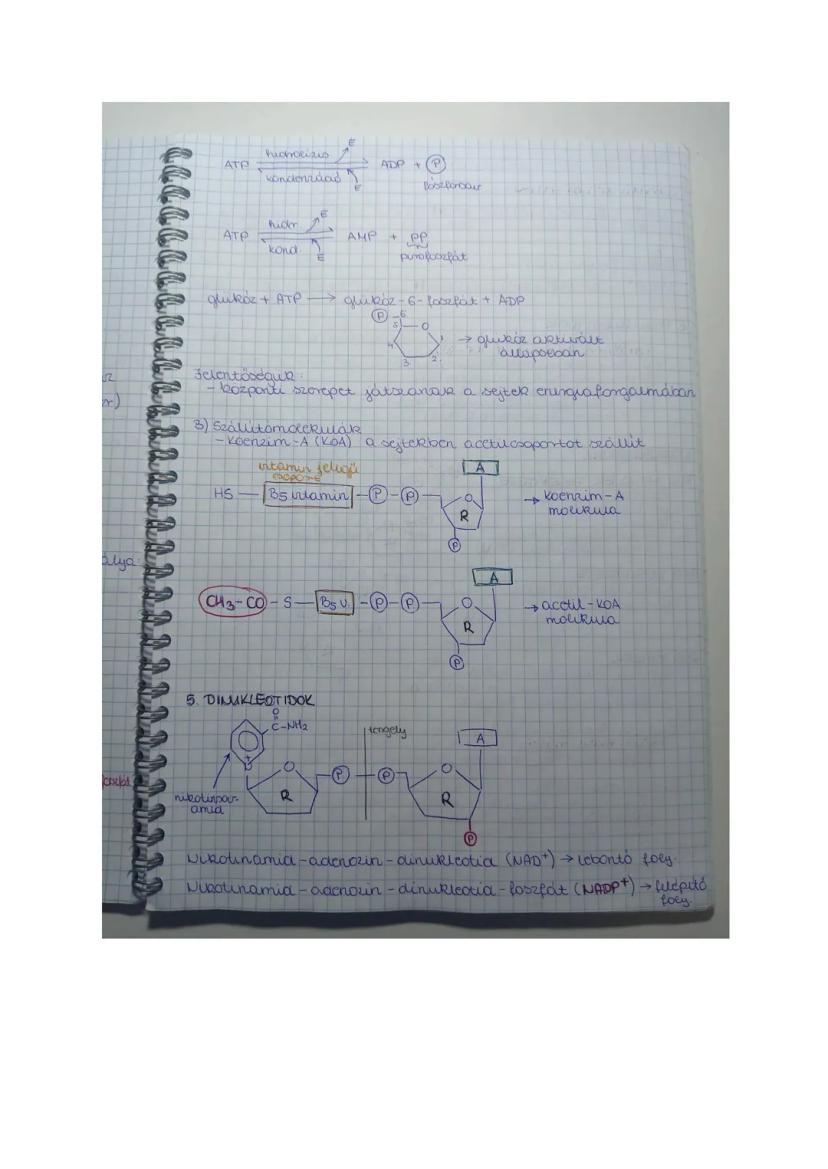 ATP hidrolízis E ADP + P
kondenzáció E foszforsav
ATP hidr E AMP + PP
kond. E pirofoszfát
glükóz + ATP → glükóz-6-foszfát + ADP
P 6
5 O
4 1 → glükóz aktivált
3 2 állapotban
Jelentőségük:
- központi szerepet játszanak a sejtek energiaforgalmában
B) Szállítómolekulák
- Koenzim-A (KoA) a sejtekben acetilcsoportot szállít
vitamin jellegű
csoport
A
HS - B5 vitamin - P - P O → koenzim-A
R molekula
P
A
CH3-CO - S - B5 v. - P - P O → acetil-KoA
R molekula
P
5. DINUKLEOTIDOK
O
C-NH2 tengely
A
+
O P P O
R R
nikotinsav-
amid
P
Nikotinamid-adenozin-dinukleotid (NAD+) → lebontó foly.
Nikotinamid-adenozin-dinukleotid-foszfát (NADP+) → felépítő
foly.